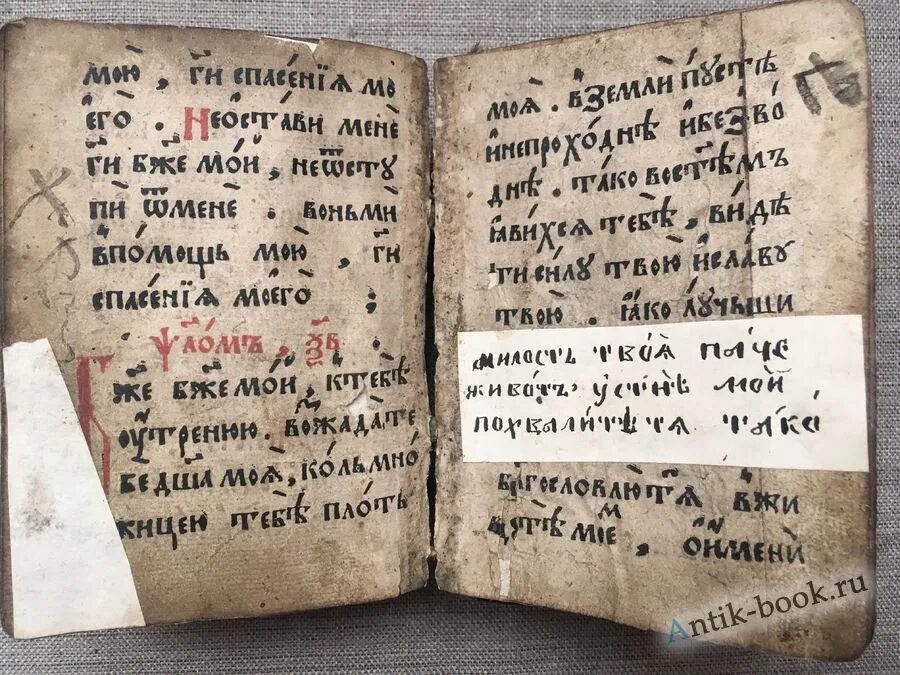 мою̀ , гⷭ҇и спасе́нїѧ мо
его̀ . Неѡста́ви менѐ
гⷭ҇и бж҃е мо́й , неѿстꙋ
пѝ ѿменѐ . воньмѝ
впо́мощь мою̀ , гⷭ҇и
спасе́нїѧ моего̀ :
Ѱало́мъ , ѯ҃в
Бж҃е бж҃е мо́й , ктебѣ̀
ᲂу҆́тренюю . возжада́ те
бе дш҃а моѧ̀ , ко́льмно́
жицею тебѣ̀ пло́ть
моѧ̀ . в землѝ пꙋстѣ
и҆непрохо́днѣ и҆безво́
днѣ . та́ко востѣ́мъ
ꙗ҆ви́хсѧ тебѣ̀ , ви́дѣ
ти си́лꙋ твою̀ и҆сла́вꙋ
твою̀ . ꙗ҆́ко лꙋ́чьши
милость твоѧ̀ па́че
живо́тъ ᲂу҆стнѣ̀ моѝ
похвали́тетѧ та́ко
блгⷭ҇ословлю́ тѧ̀ вжи
вотѣ̀ мое́мъ , ѡ҆и҆́мени
Antik-book.ru